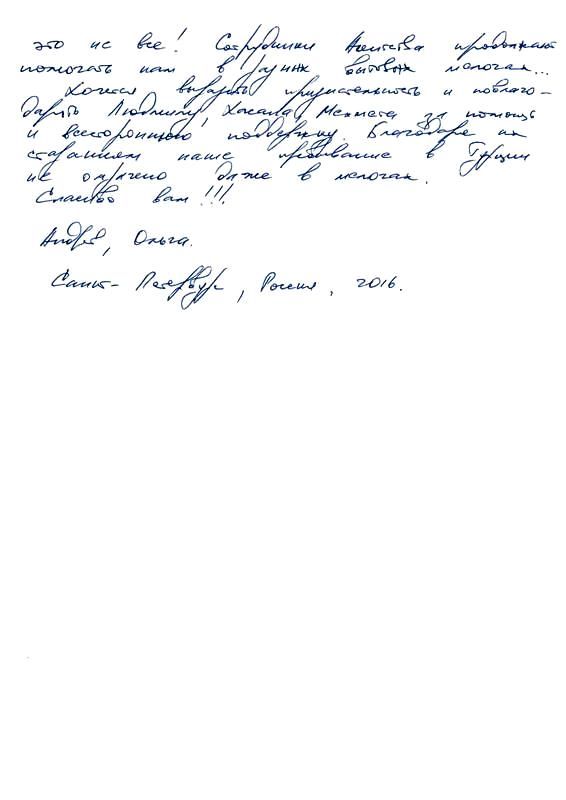 это не все! Сотрудники Агентства продолжают
помогать нам в разных бытовых мелочах...
Хочется выразить признательность и поблаго-
дарить Людмилу, Хасана, Мехмета за помощь
и всестороннюю поддержку. Благодаря их
стараниям наше пребывание в Турции
не омрачено даже в мелочах.
Спасибо вам!!!
Андрей, Ольга.
Санкт-Петербург, Россия, 2016.